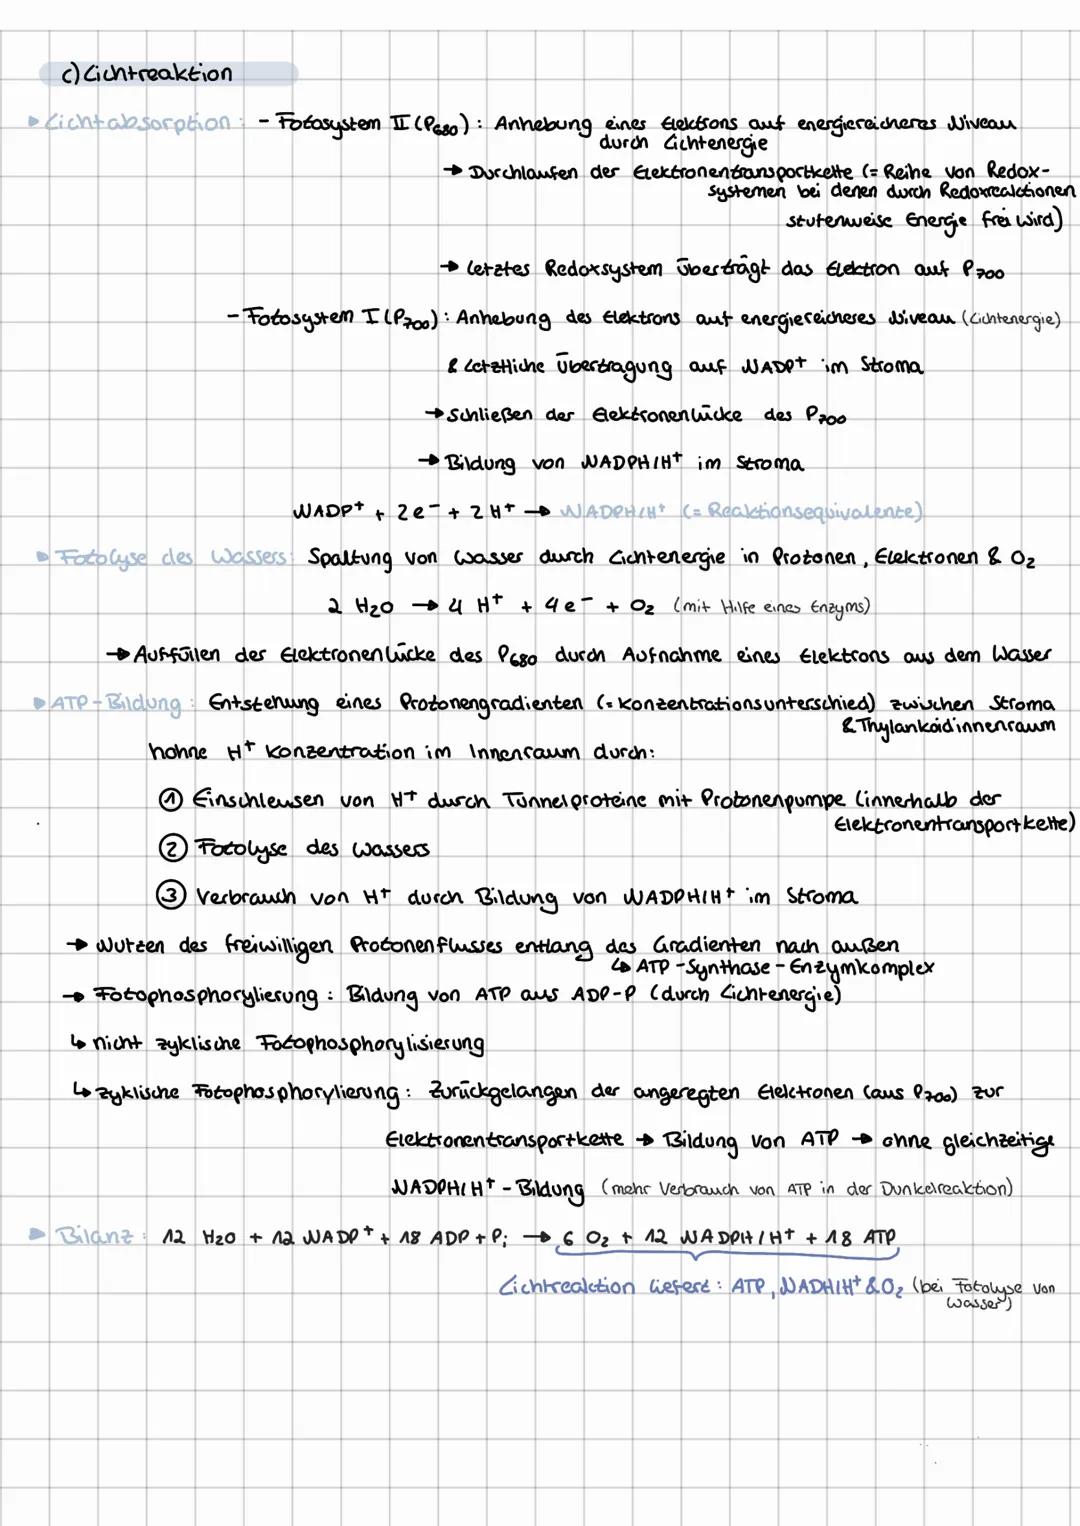 c) Lichtreaktion
▸ Lichtabsorption: - Fotosystem II (P680): Anhebung eines Elektrons auf energiereicheres Niveau
durch Lichtenergie
→ Durchlaufen der Elektronentransportkette (= Reihe von Redox-
systemen bei denen durch Redoxreaktionen
stufenweise Energie frei wird)
→ letztes Redoxsystem überträgt das Elektron auf P700
- Fotosystem I (P700): Anhebung des Elektrons auf energiereicheres Niveau (Lichtenergie)
& letztliche Übertragung auf NADP+ im Stroma
→ Schließen der Elektronenlücke des P700
→ Bildung von NADPH/H+ im Stroma
NADP+ + 2e⁻ + 2 H+ → NADPH/H+ (= Reaktionsequivalente)
▸ Fotolyse des Wassers: Spaltung von Wasser durch Lichtenergie in Protonen, Elektronen & O₂
2 H₂O → 4 H+ + 4e⁻ + O₂ (mit Hilfe eines Enzyms)
→ Auffüllen der Elektronenlücke des P680 durch Aufnahme eines Elektrons aus dem Wasser
▸ ATP-Bildung: Entstehung eines Protonengradienten (= Konzentrationsunterschied) zwischen Stroma
& Thylankoidinnenraum
hohne H+ Konzentration im Innenraum durch:
① Einschleusen von H+ durch Tunnelproteine mit Protonenpumpe (innerhalb der
Elektronentransportkette)
② Fotolyse des Wassers
③ Verbrauch von H+ durch Bildung von NADPH/H+ im Stroma
→ Nutzen des freiwilligen Protonenflusses entlang des Gradienten nach außen
↳ ATP-Synthase-Enzymkomplex
→ Fotophosphorylierung: Bildung von ATP aus ADP-P (durch Lichtenergie)
↳ nicht zyklische Fotophosphorylisierung
↳ zyklische Fotophosphorylierung: Zurückgelangen der angeregten Elektronen (aus P700) zur
Elektronentransportkette → Bildung von ATP → ohne gleichzeitige
NADPH/H+-Bildung (mehr Verbrauch von ATP in der Dunkelreaktion)
▸ Bilanz: 12 H₂O + 12 NADP+ + 18 ADP + Pi → 6 O₂ + 12 NADPH/H+ + 18 ATP
Lichtreaktion liefert: ATP, NADH/H+ & O₂ (bei Fotolyse von
Wasser)